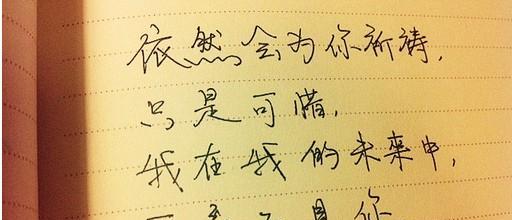 依然会为你祈祷，
只是可惜，
我在我的未来中，
你